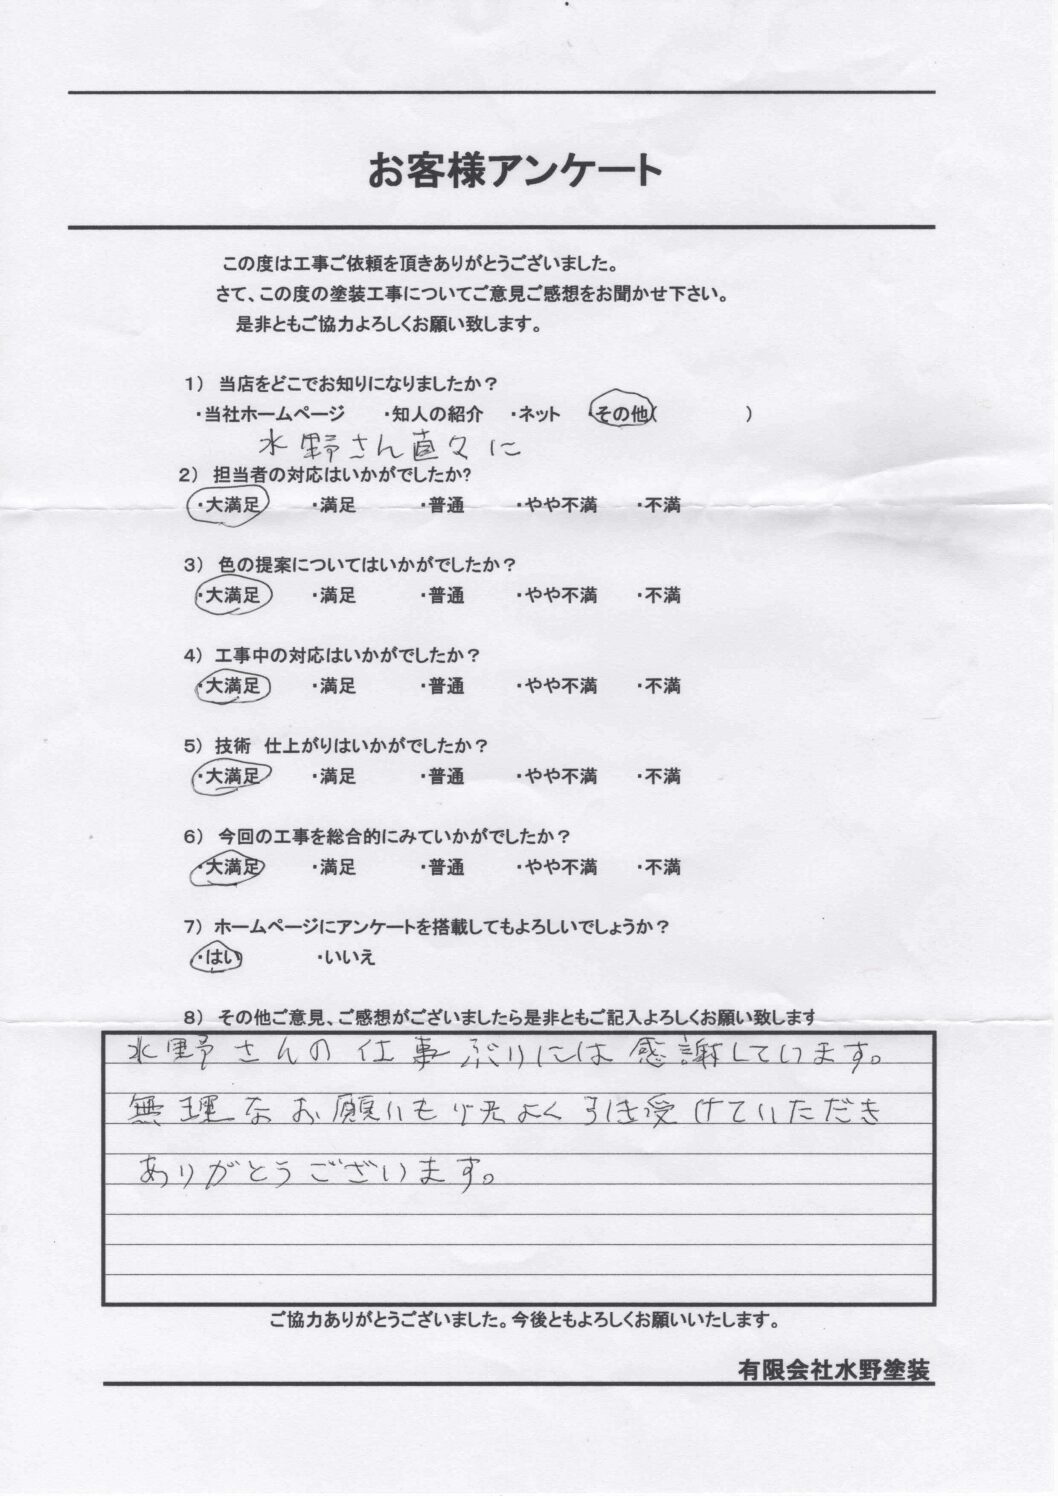 お客様アンケート
この度は工事ご依頼を頂きありがとうございました。
さて、この度の塗装工事についてご意見ご感想をお聞かせ下さい。
是非ともご協力よろしくお願い致します。
1） 当店をどこでお知りになりましたか？
・当社ホームページ ・知人の紹介 ・ネット ・その他( )
水野さん直々に
2） 担当者の対応はいかがでしたか?
・大満足 ・満足 ・普通 ・やや不満 ・不満
3） 色の提案についてはいかがでしたか？
・大満足 ・満足 ・普通 ・やや不満 ・不満
4） 工事中の対応はいかがでしたか？
・大満足 ・満足 ・普通 ・やや不満 ・不満
5） 技術 仕上がりはいかがでしたか？
・大満足 ・満足 ・普通 ・やや不満 ・不満
6） 今回の工事を総合的にみていかがでしたか？
・大満足 ・満足 ・普通 ・やや不満 ・不満
7） ホームページにアンケートを搭載してもよろしいでしょうか？
・はい ・いいえ
8） その他ご意見、ご感想がございましたら是非ともご記入よろしくお願い致します
水野さんの仕事ぶりには感謝しています。
無理なお願いも快よく引き受けていただき
ありがとうございます。
ご協力ありがとうございました。今後ともよろしくお願いいたします。
有限会社水野塗装